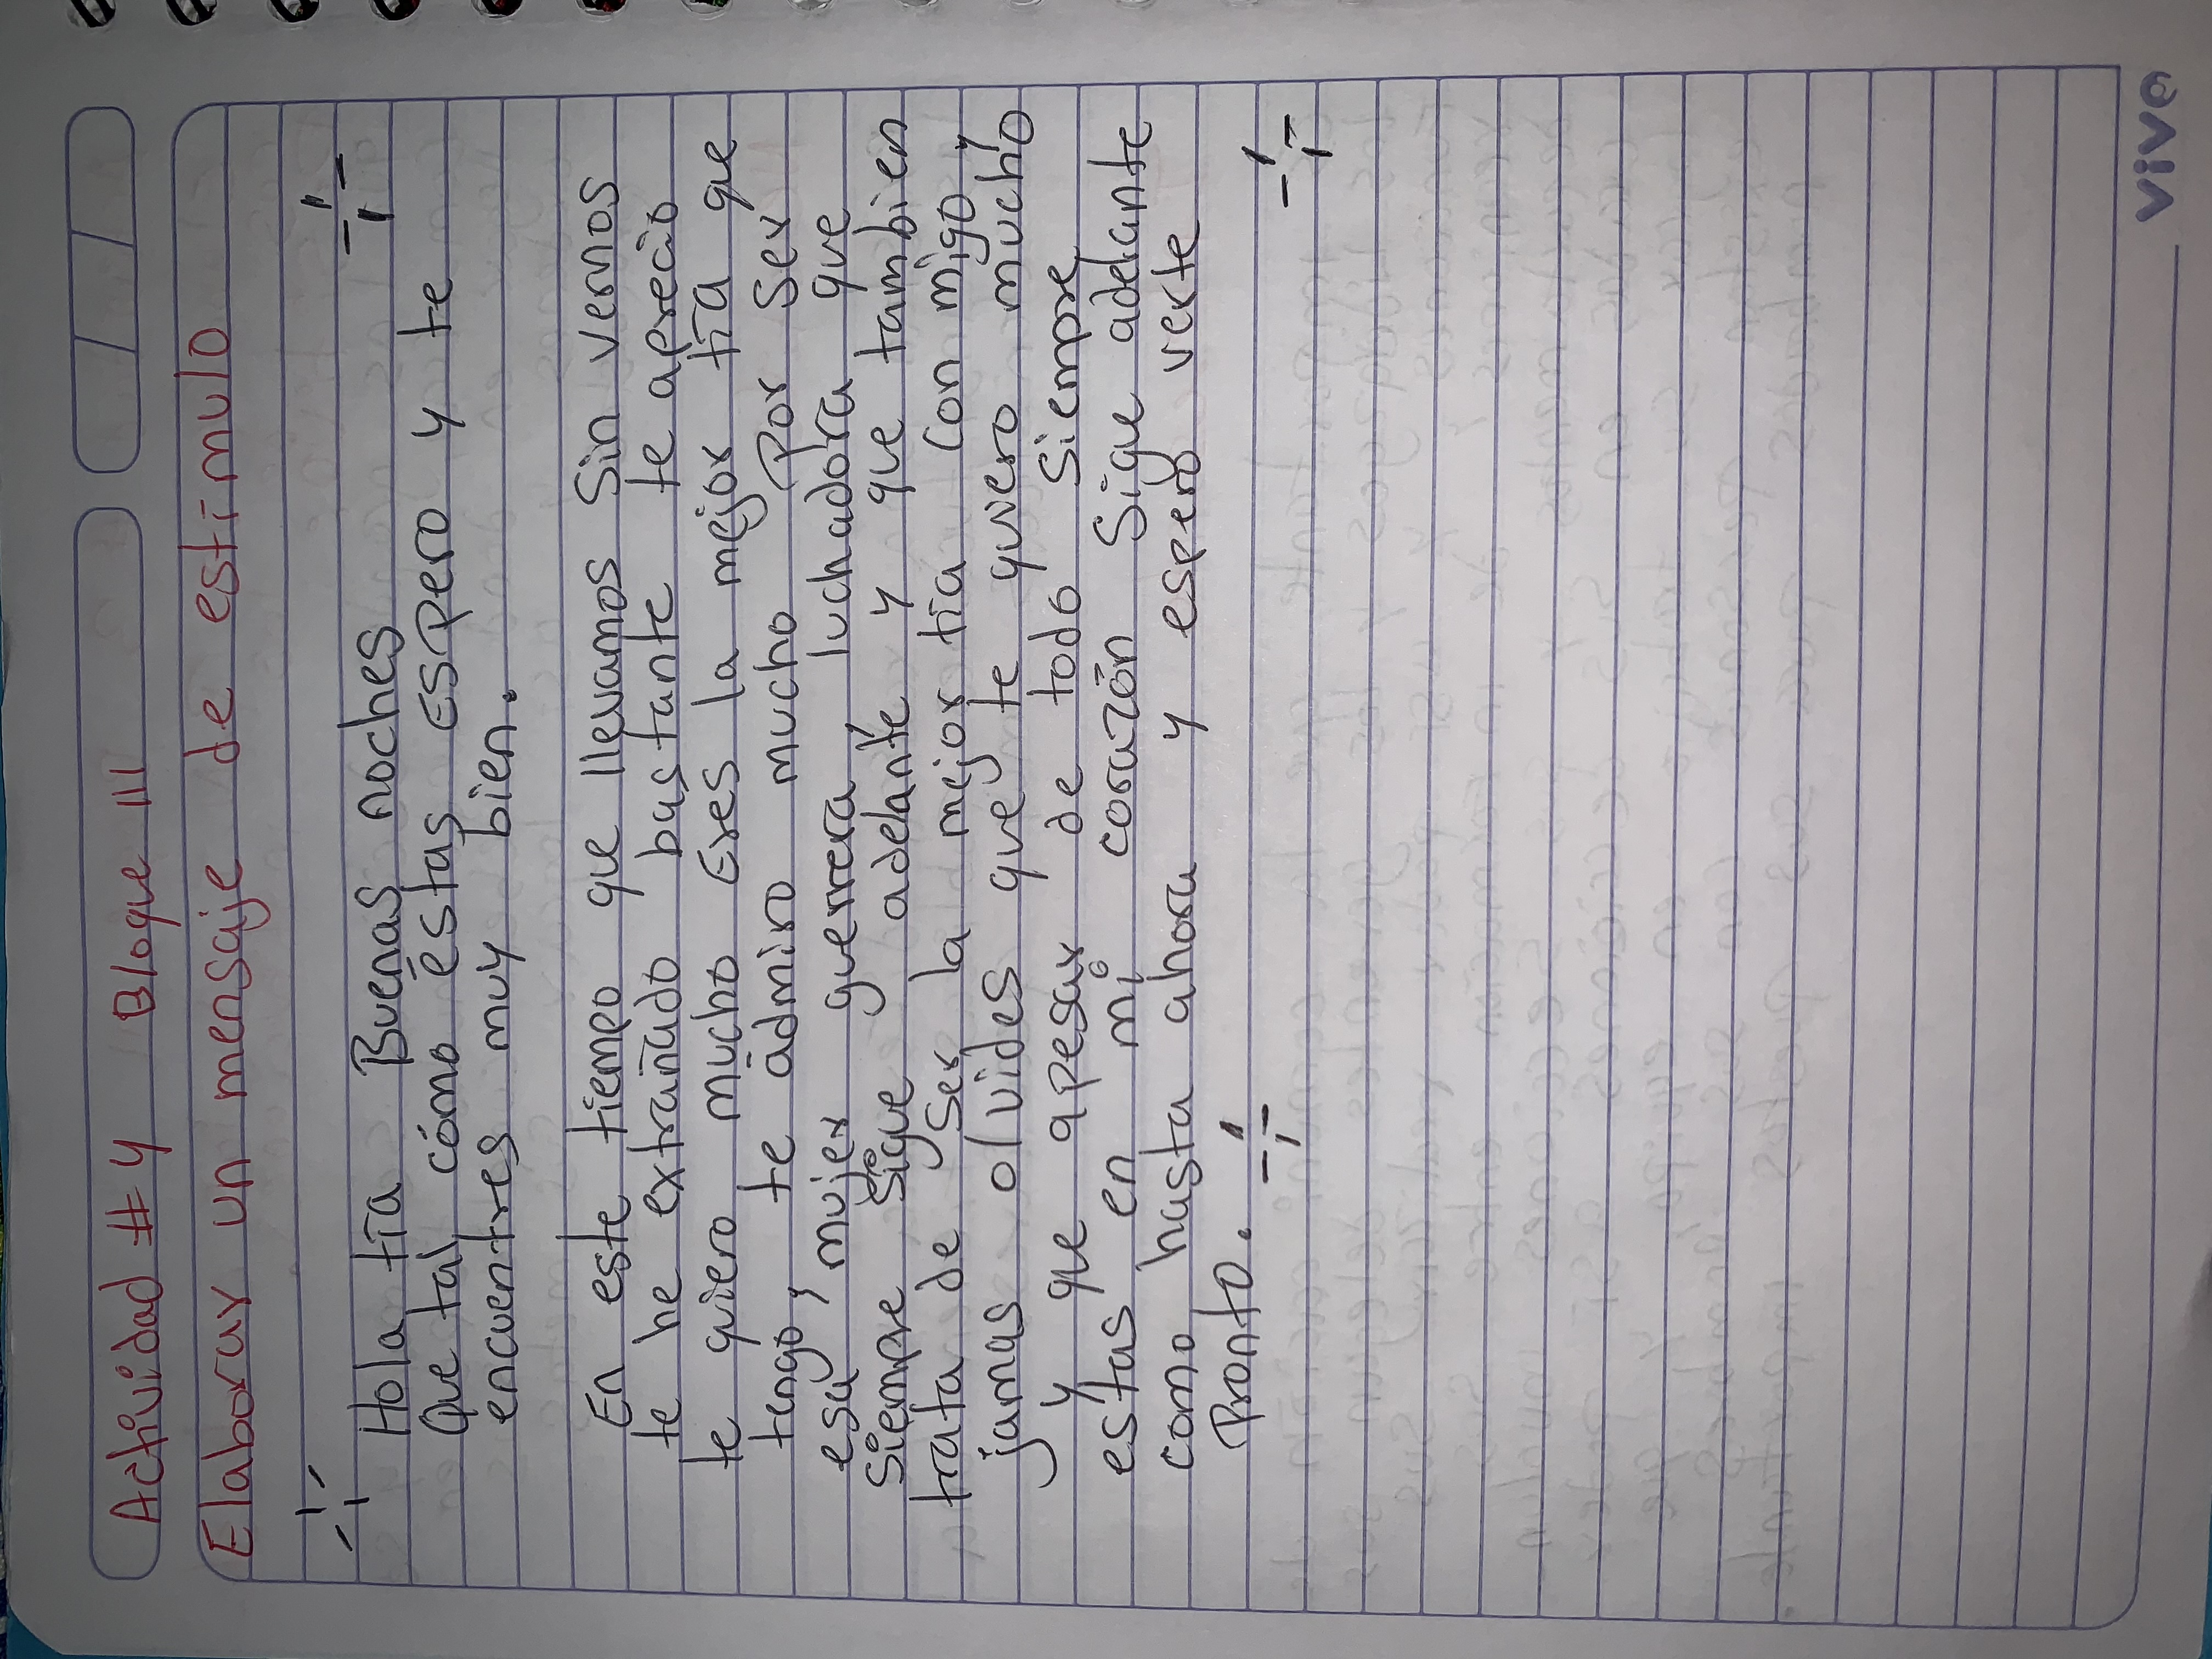 Actividad #4 Bloque III
Elaborar un mensaje de estímulo
Hola tía Buenas noches
Que tal cómo éstas Espero y te
encuentres muy bien.
En este tiempo que llevamos Sin vernos
te he extrañado bastante te aprecio
te quiero mucho Eres la mejor tía que
tengo, te ádmiro mucho Por Ser
esa, mujer guerrera luchadora que
Siempre Sigue adelante y que tambien
trata de Ser la mejor tía Con migo y
jamas olvides que te quiero mucho
y que apesar de todo Siempre
estas en mi corazón Sigue adelante
como hasta ahora y espero verte
Pronto.
vivo